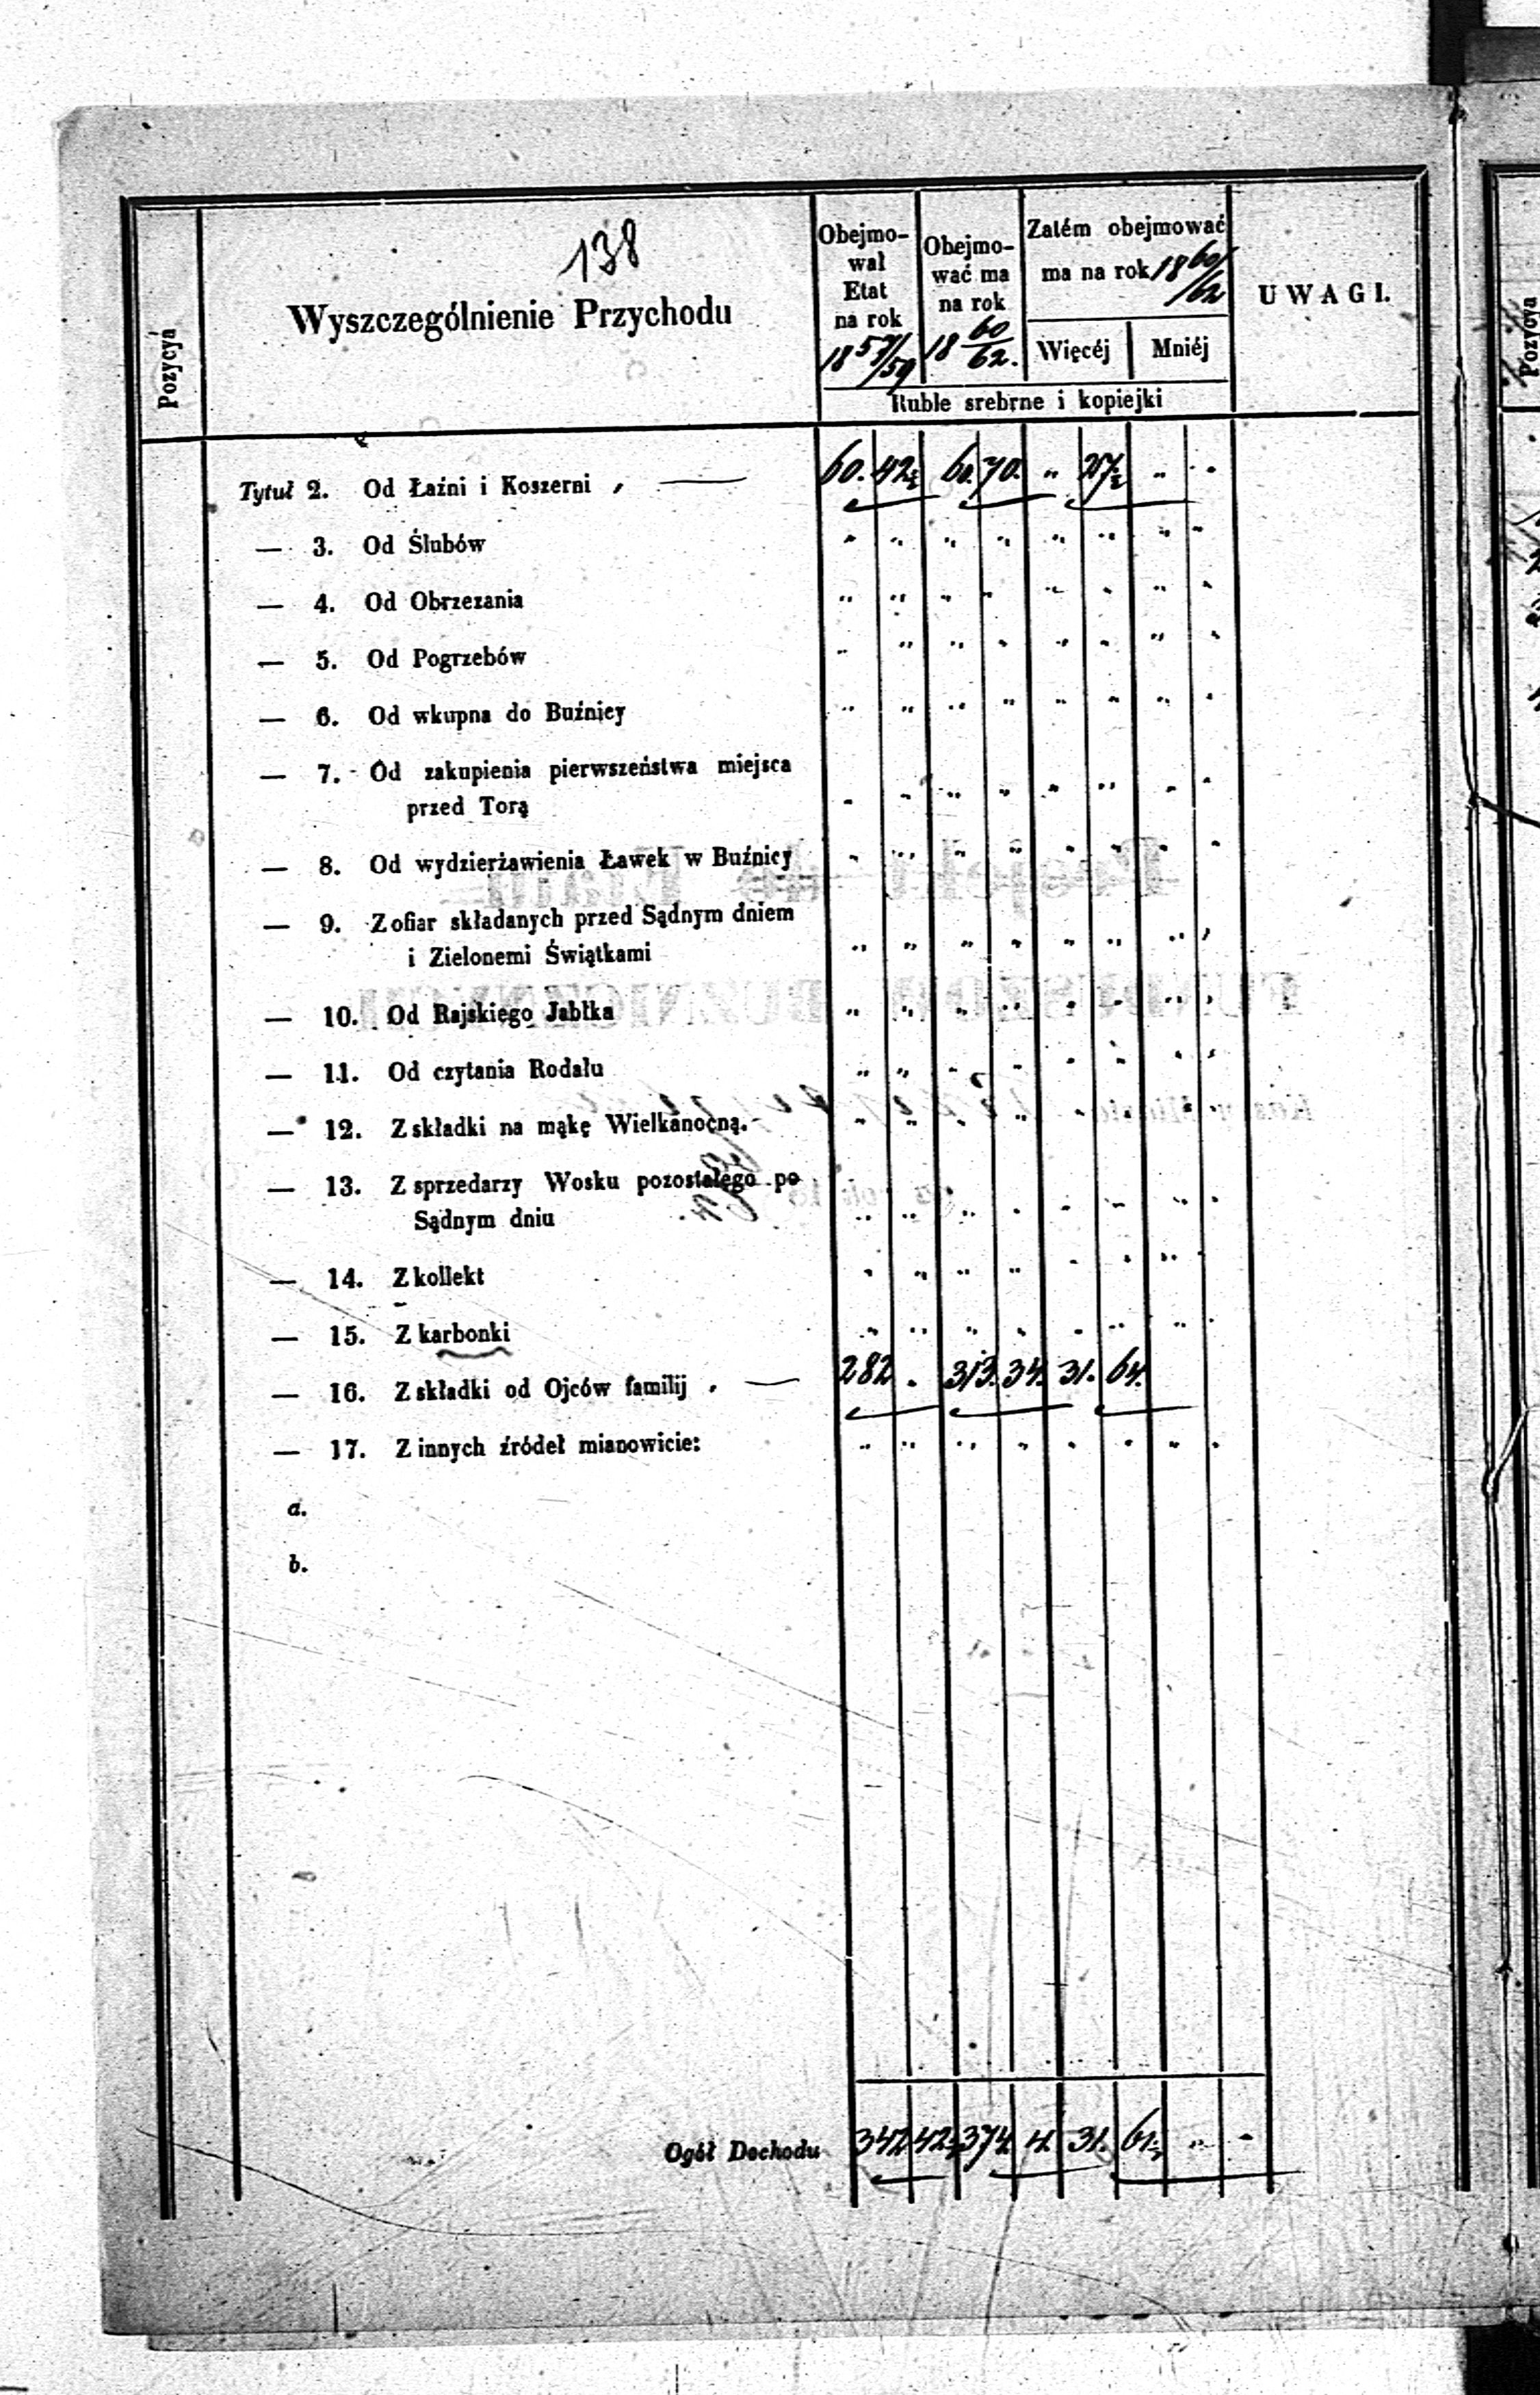 138
Pozycya
Wyszczególnienie Przychodu
Obejmo-
wał
Etat
na rok
18 57/59
Obejmo-
wać ma
na rok
18 60/62.
Zatém obejmować
ma na rok 18 60/62
Więcéj Mniéj
Ruble srebrne i kopiejki
UWAGI.
Tytuł 2. Od Łaźni i Koszerni , — 60. 42½ 60. 70. „ 27½ „ „
— 3. Od Ślubów „ „ „ „ „ „ „ „
— 4. Od Obrzezania „ „ „ „ „ „ „ „
— 5. Od Pogrzebów „ „ „ „ „ „ „ „
— 6. Od wkupna do Buźnicy „ „ „ „ „ „ „ „
— 7. Od zakupienia pierwszeństwa miejsca
przed Torą „ „ „ „ „ „ „ „
— 8. Od wydzierżawienia Ławek w Buźnicy „ „ „ „ „ „ „ „
— 9. Z ofiar składanych przed Sądnym dniem
i Zielonemi Świątkami „ „ „ „ „ „ „ „
— 10. Od Rajskiego Jabłka „ „ „ „ „ „ „ „
— 11. Od czytania Rodału „ „ „ „ „ „ „ „
— 12. Z składki na mąkę Wielkanocną. „ „ „ „ „ „ „ „
— 13. Z sprzedarzy Wosku pozostałego po
Sądnym dniu „ „ „ „ „ „ „ „
— 14. Z kollekt „ „ „ „ „ „ „ „
— 15. Z karbonki „ „ „ „ „ „ „ „
— 16. Z składki od Ojców familij , — 282 . 313. 34. 31. 64.
— 17. Z innych źródeł mianowicie: „ „ „ „ „ „ „ „
a.
b.
Ogół Dochodu 342 42½ 374 4. 31. 61½ „ „
Pozycya